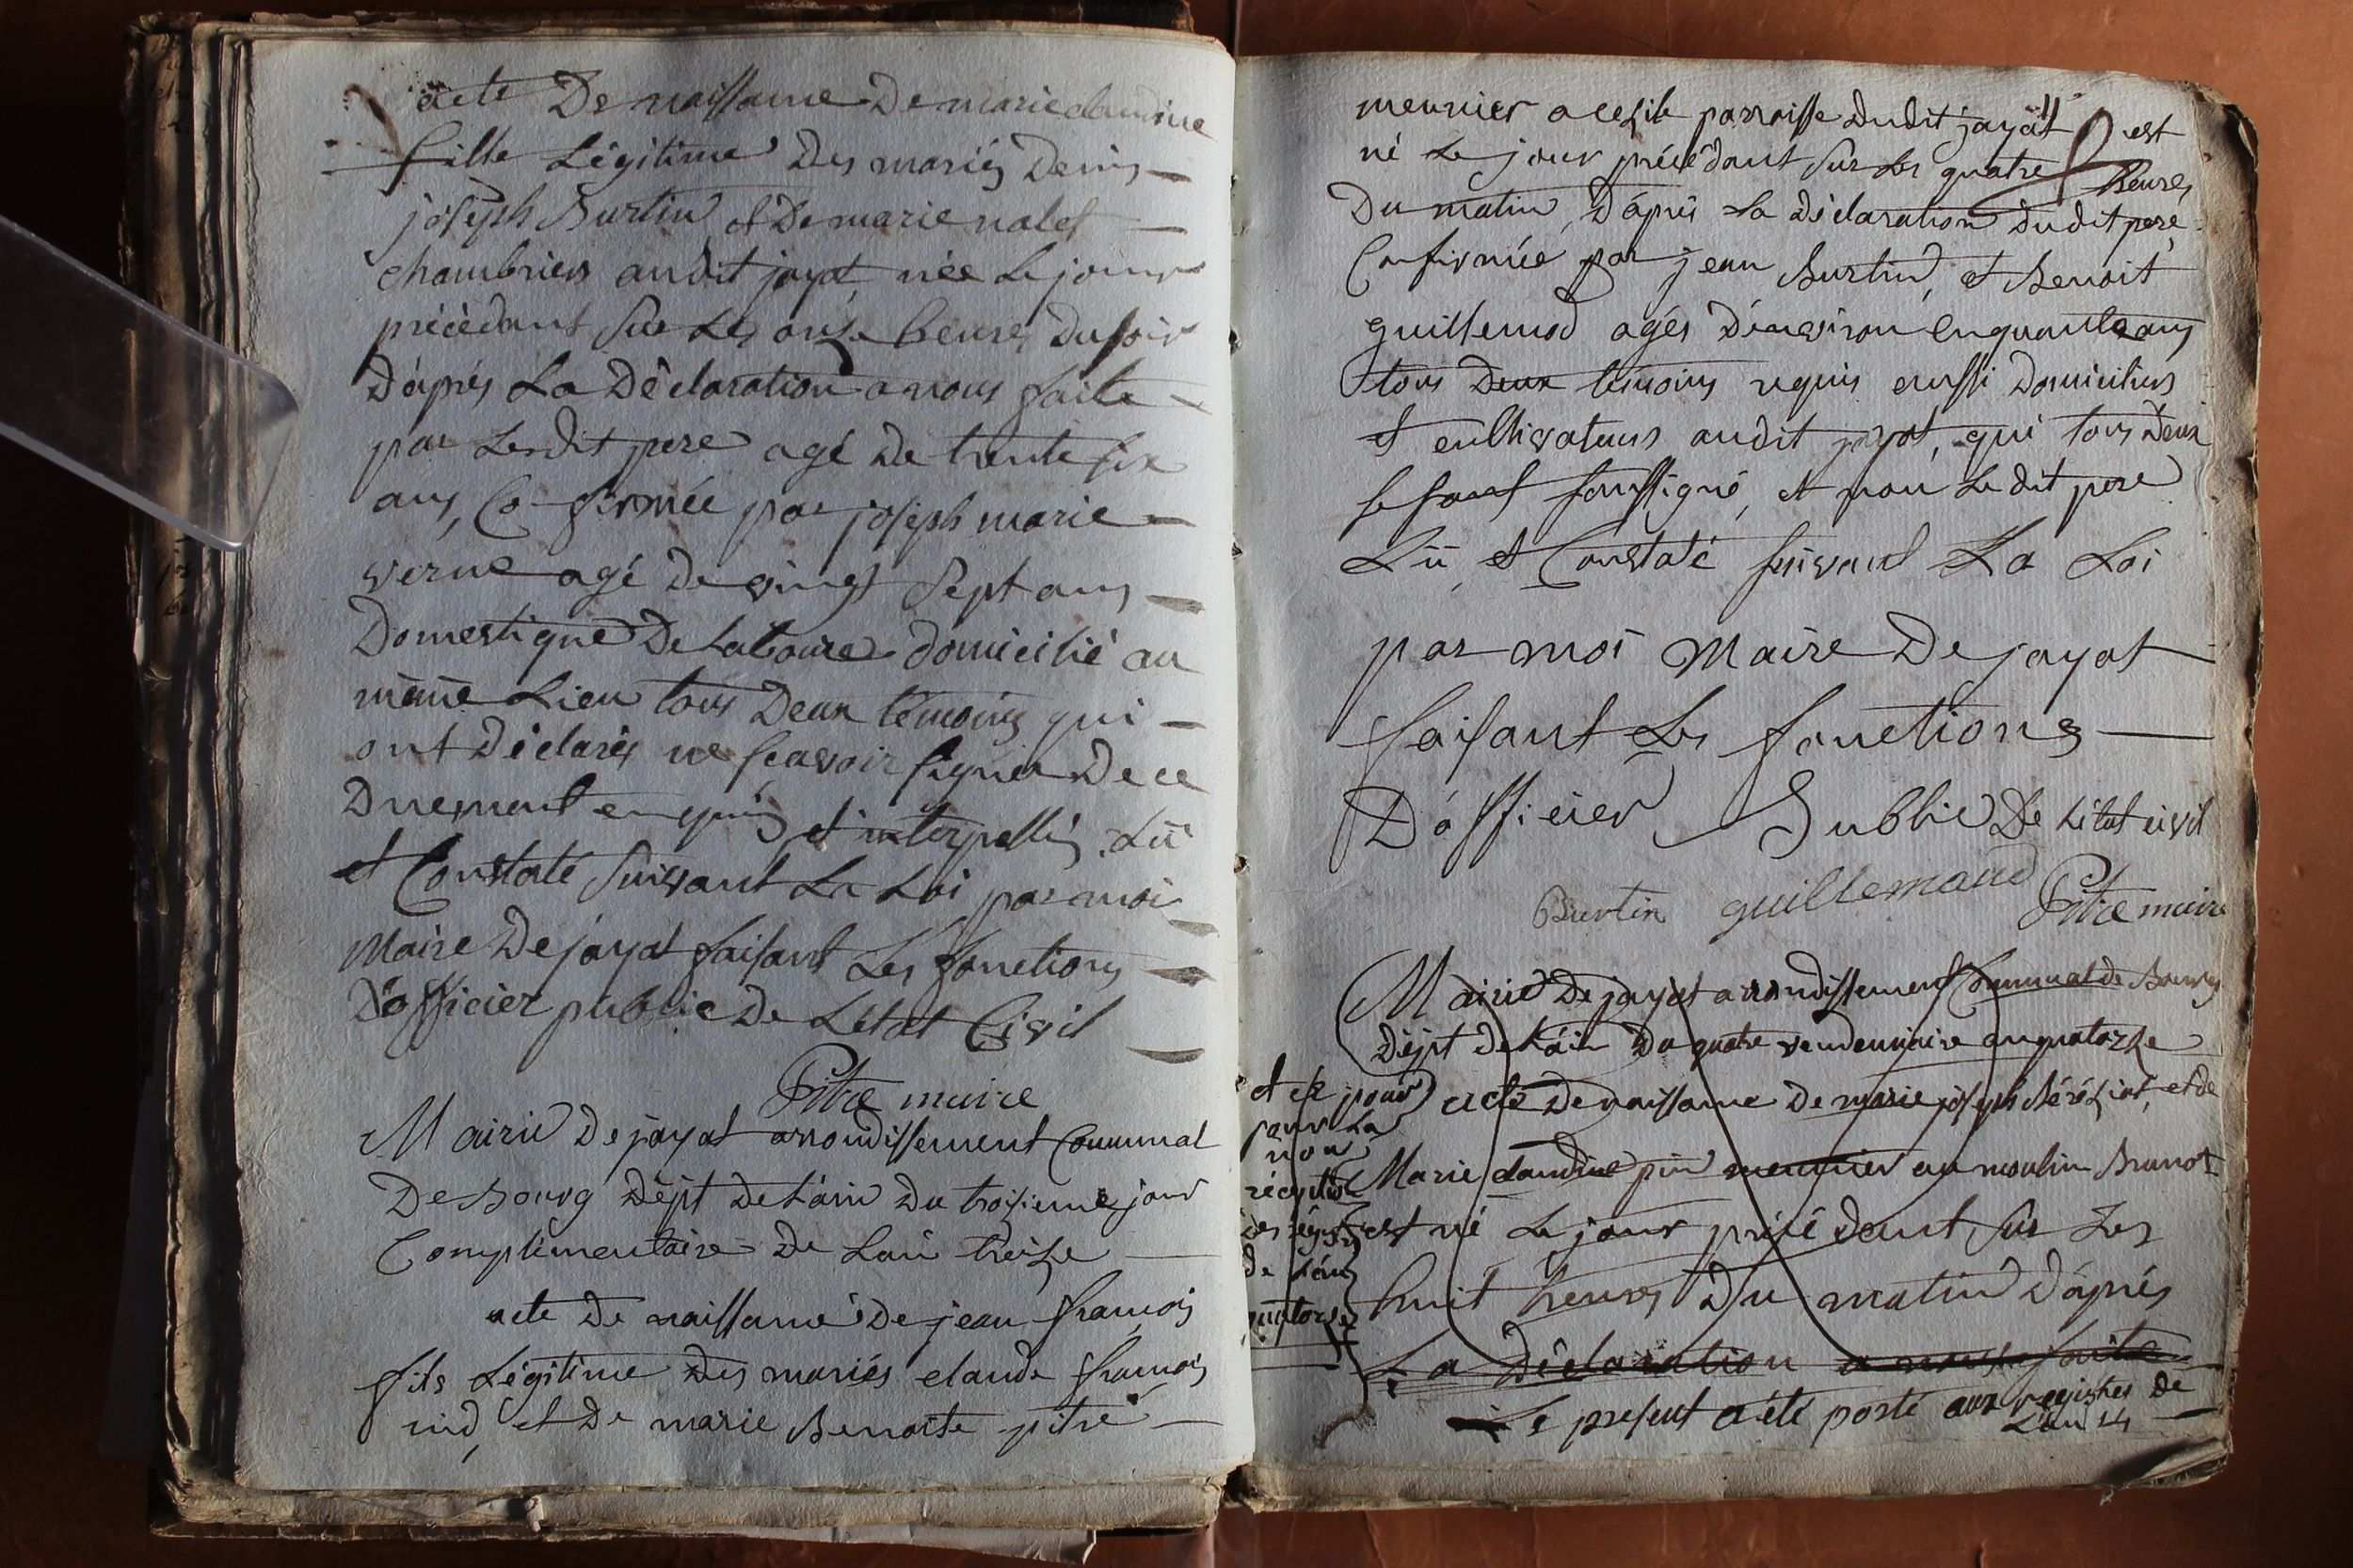 acte De naissance De marie claudine
fille Légitime Des mariés Denis
joseph Burtin et De marie nalet
chambriers au dit jayat, née Le jour
précèdant sur Les onze heures Du soir
D'après La Déclaration a nous faite
par Le dit pere agé De trente six
ans, Confirmée par joseph marie
verne agé De vingt sept ans
Domestique De Labours domicilié au
même Lieu tous Deux témoins qui
ont Déclarés ne sçavoir signer De ce
Duement enquis et interpellés. Lû
et Constaté suivant La Loi par moi
Maire De jayat faisant Les fonctions
D'officier public De L'état Civil
Pitre maire
Mairie De jayat arrondissement Communal
De Bourg Dépt De L'ain Du troisieme jour
Complémentaire De L'an treize
acte De naissance De jean françois
fils Légitime Des mariés claude françois
nid, et De marie Benoite pitre
meunier a ces,ile parroisse Dudit jayat est
né Le jour précédant sur Les quatre heures
Du matin, D'après La Déclaration dudit pere
Confirmée par jean Burtin, et Benoit
guillemod agés D'environ cinquante ans
tous Deux témoins requis aussi Domiciliers
et cultivateurs audit jayat, qui tous Deux
se sont soussigné, et non Le dit pere
Lû, et Constaté suivant La Loi
par moi Maire De jayat
faisant Les fonctions
D'officier Public De L'état civil
Burtin guillemaud Pitre maire
Mairie De jayat arrondissement Communal de Bourg
Dépt De L'ain Du quatre vendemiaire an quatorze
acte De naissance De marie joseph Béréziat, et de
Marie claudine pin meunier au moulin Brunot
est né Le jour précédant sur Les
huit heures Du matin D'après
La Déclaration a nous faite
Le present a été porté aux registres de
L'an 14
et ce pour
pour La
non
réception
des régtres
de L'an
quatorze